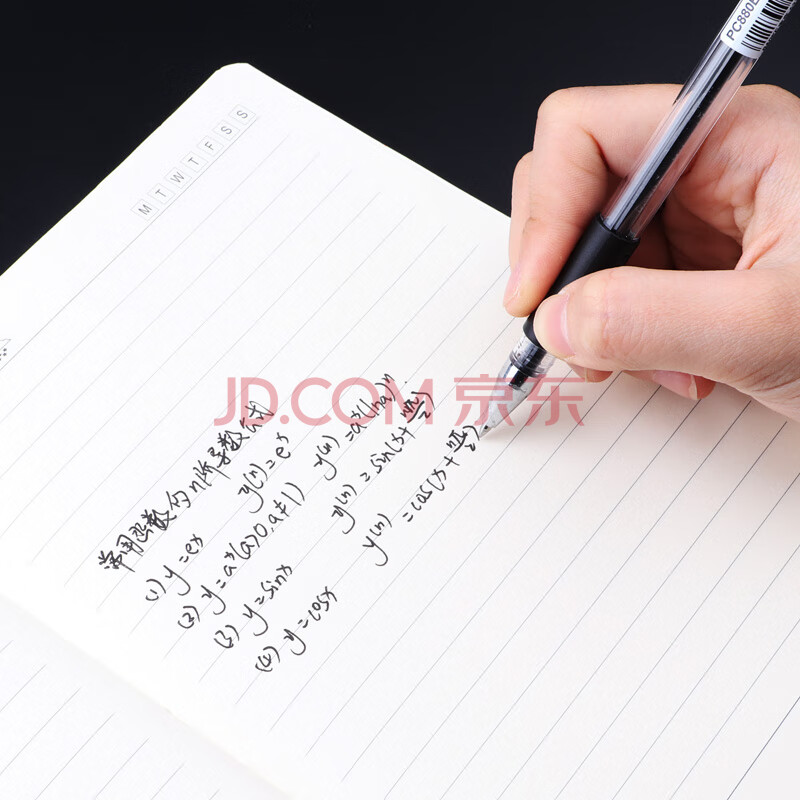 PC880
M T W T F S S
JD.COM 京东
常用函数的n阶导数公式
(1) y=eˣ y⁽ⁿ⁾=eˣ
(2) y=aˣ(a>0,a≠1) y⁽ⁿ⁾=aˣ(lna)ⁿ
(3) y=sinx y⁽ⁿ⁾=sin(x+nπ/2)
(4) y=cosx y⁽ⁿ⁾=cos(x+nπ/2)